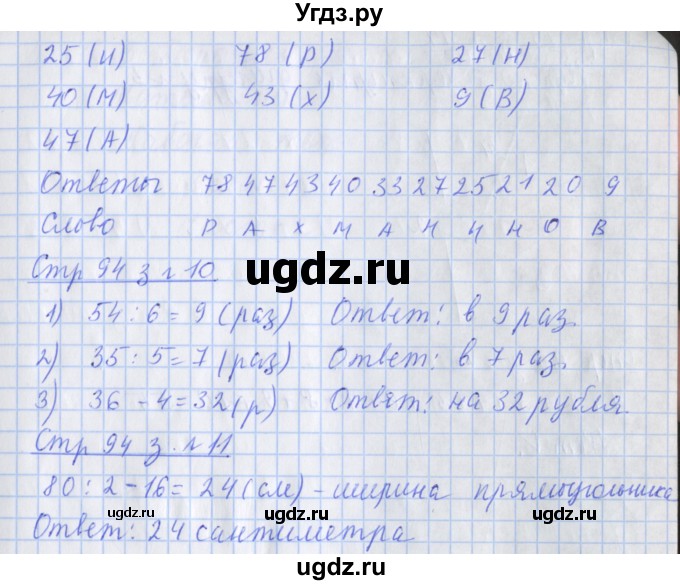 Угдз.ру
25 (И) 78 (Р) 27 (Н)
40 (М) 43 (Х) 9 (В)
47 (А)
Ответы 78 47 43 40 33 27 25 21 20 9
Слово Р А Х М А Н И Н О В
Стр 94 з № 10
1) 54 : 6 = 9 (раз) Ответ: в 9 раз.
2) 35 : 5 = 7 (раз) Ответ: в 7 раз.
3) 36 - 4 = 32 (р) Ответ: на 32 рубля.
Стр 94 з. № 11
80 : 2 - 16 = 24 (см) - ширина прямоугольника
Ответ: 24 сантиметра
ugdz.ru
ugdz.ru
ugdz.ru
ugdz.ru
ugdz.ru ugdz.ru ugdz.ru
ugdz.ru ugdz.ru ugdz.ru